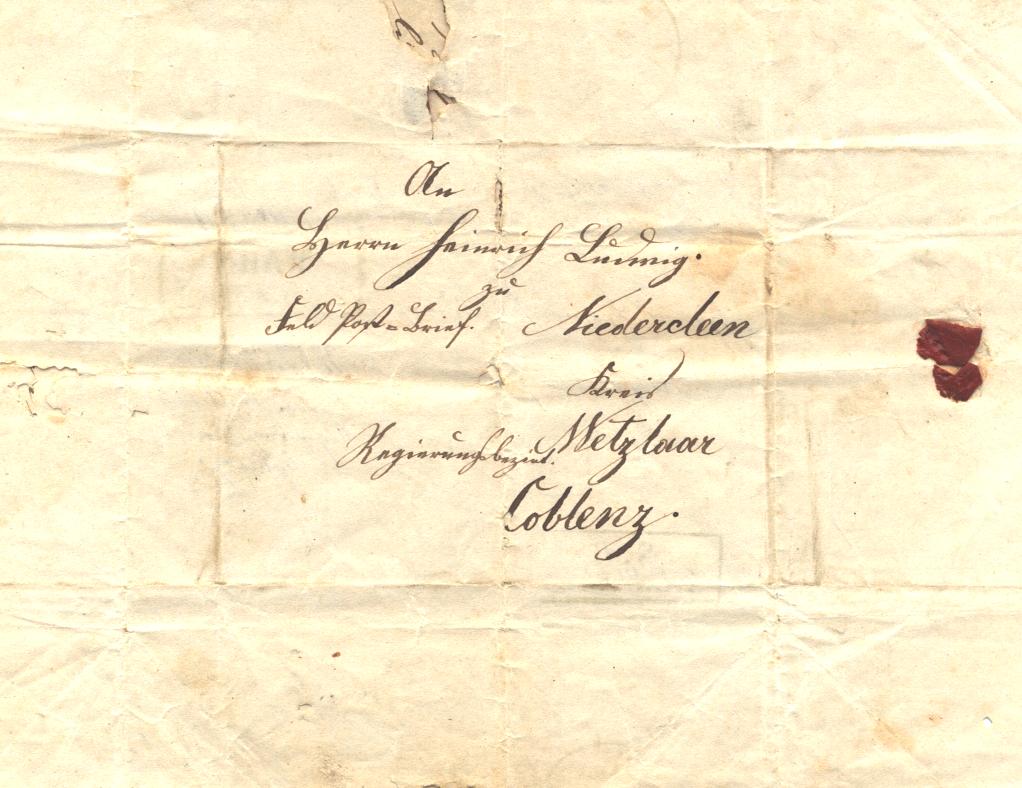 An
Herrn Heinrich Ludwig.
zu
Feld Post=Brief. Niedercleen
Kreis
Wetzlaar
Regierungsbezirk.
Coblenz.